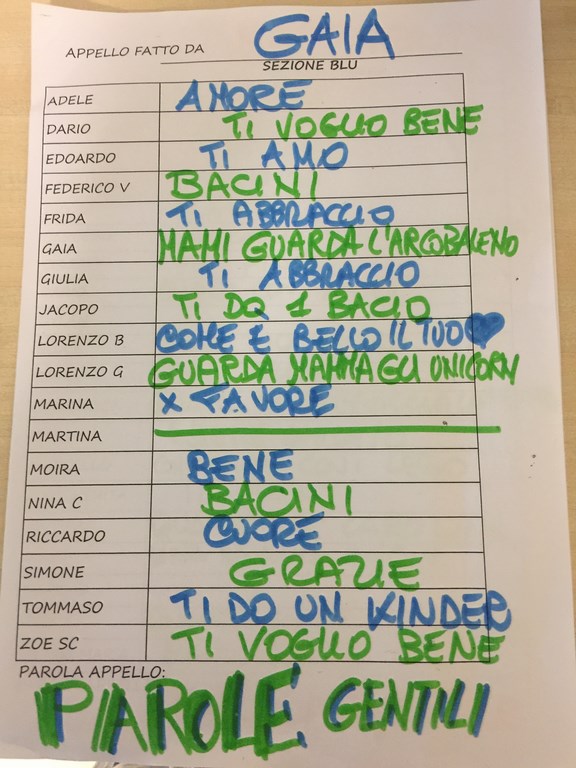 APPELLO FATTO DA GAIA
SEZIONE BLU
ADELE AMORE
DARIO TI VOGLIO BENE
EDOARDO TI AMO
FEDERICO V BACINI
FRIDA TI ABBRACCIO
GAIA MAMI GUARDA L'ARCOBALENO
GIULIA TI ABBRACCIO
JACOPO TI DO 1 BACIO
LORENZO B COME E BELLO IL TUO
LORENZO G GUARDA MAMMA GLI UNICORN
MARINA X FAVORE
MARTINA
MOIRA BENE
NINA C BACINI
RICCARDO CUORE
SIMONE GRAZIE
TOMMASO TI DO UN KINDER
ZOE SC TI VOGLIO BENE
PAROLA APPELLO:
PAROLE GENTILI